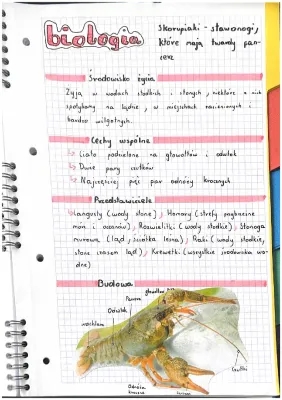 biologia
Skorupiaki - stawonogi,
które mają twardy pan-
cerz
Środowisko życia
Żyją w wodach słodkich i słonych, niektóre z nich
spotykamy na lądzie, w miejscach zacienionych i
bardzo wilgotnych.
Cechy wspólne
Ciało podzielone na głowotłów i odwłok
Dwie pary czułków
Najczęściej pięć par odnóży krocznych
Przedstawiciele
Langusty (wody słone), Homary (strefy przybrzeżne
mórz i oceanów), Rozwielitki (wody słodkie), Stonoga
murowa (ląd, ściółka leśna), Raki (wody słodkie,
słone czasem ląd), Krewetki (wszystkie środowiska wo-
dne)
Budowa
głowotłów
Pancerz
Odwłok
wachlarz
Czułki
Odnóża
kroczne